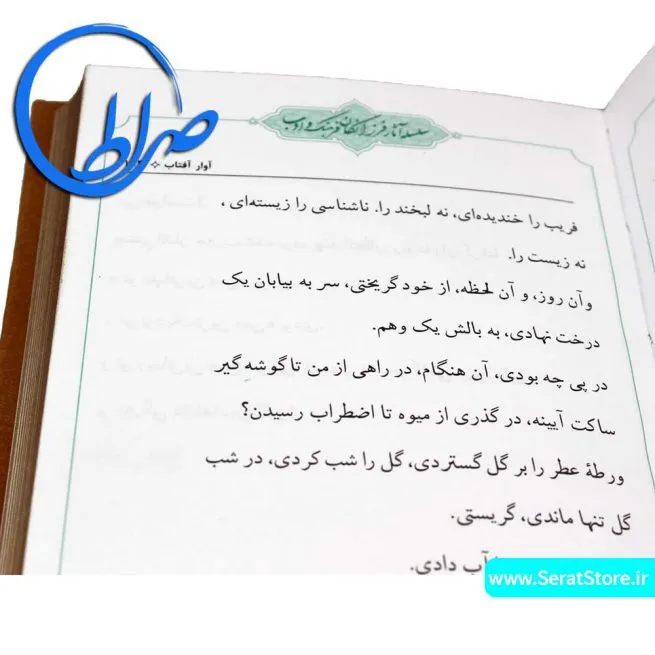 صراط
سلسله آثار فرزانگان فرهنگ و ادب
آوار آفتاب
فریب را خندیده‌ای، نه لبخند را. ناشناسی را زیسته‌ای،
نه زیست را.
وآن روز، و آن لحظه، از خود گریختی، سر به بیابان یک
درخت نهادی، به بالش یک وهم.
در پی چه بودی، آن هنگام، در راهی از من تا گوشه گیر
ساکت آیینه، در گذری از میوه تا اضطراب رسیدن؟
ورطهٔ عطر را بر گل گستردی، گل را شب کردی، در شب
گل تنها ماندی، گریستی.
آب دادی.
www.SeratStore.ir